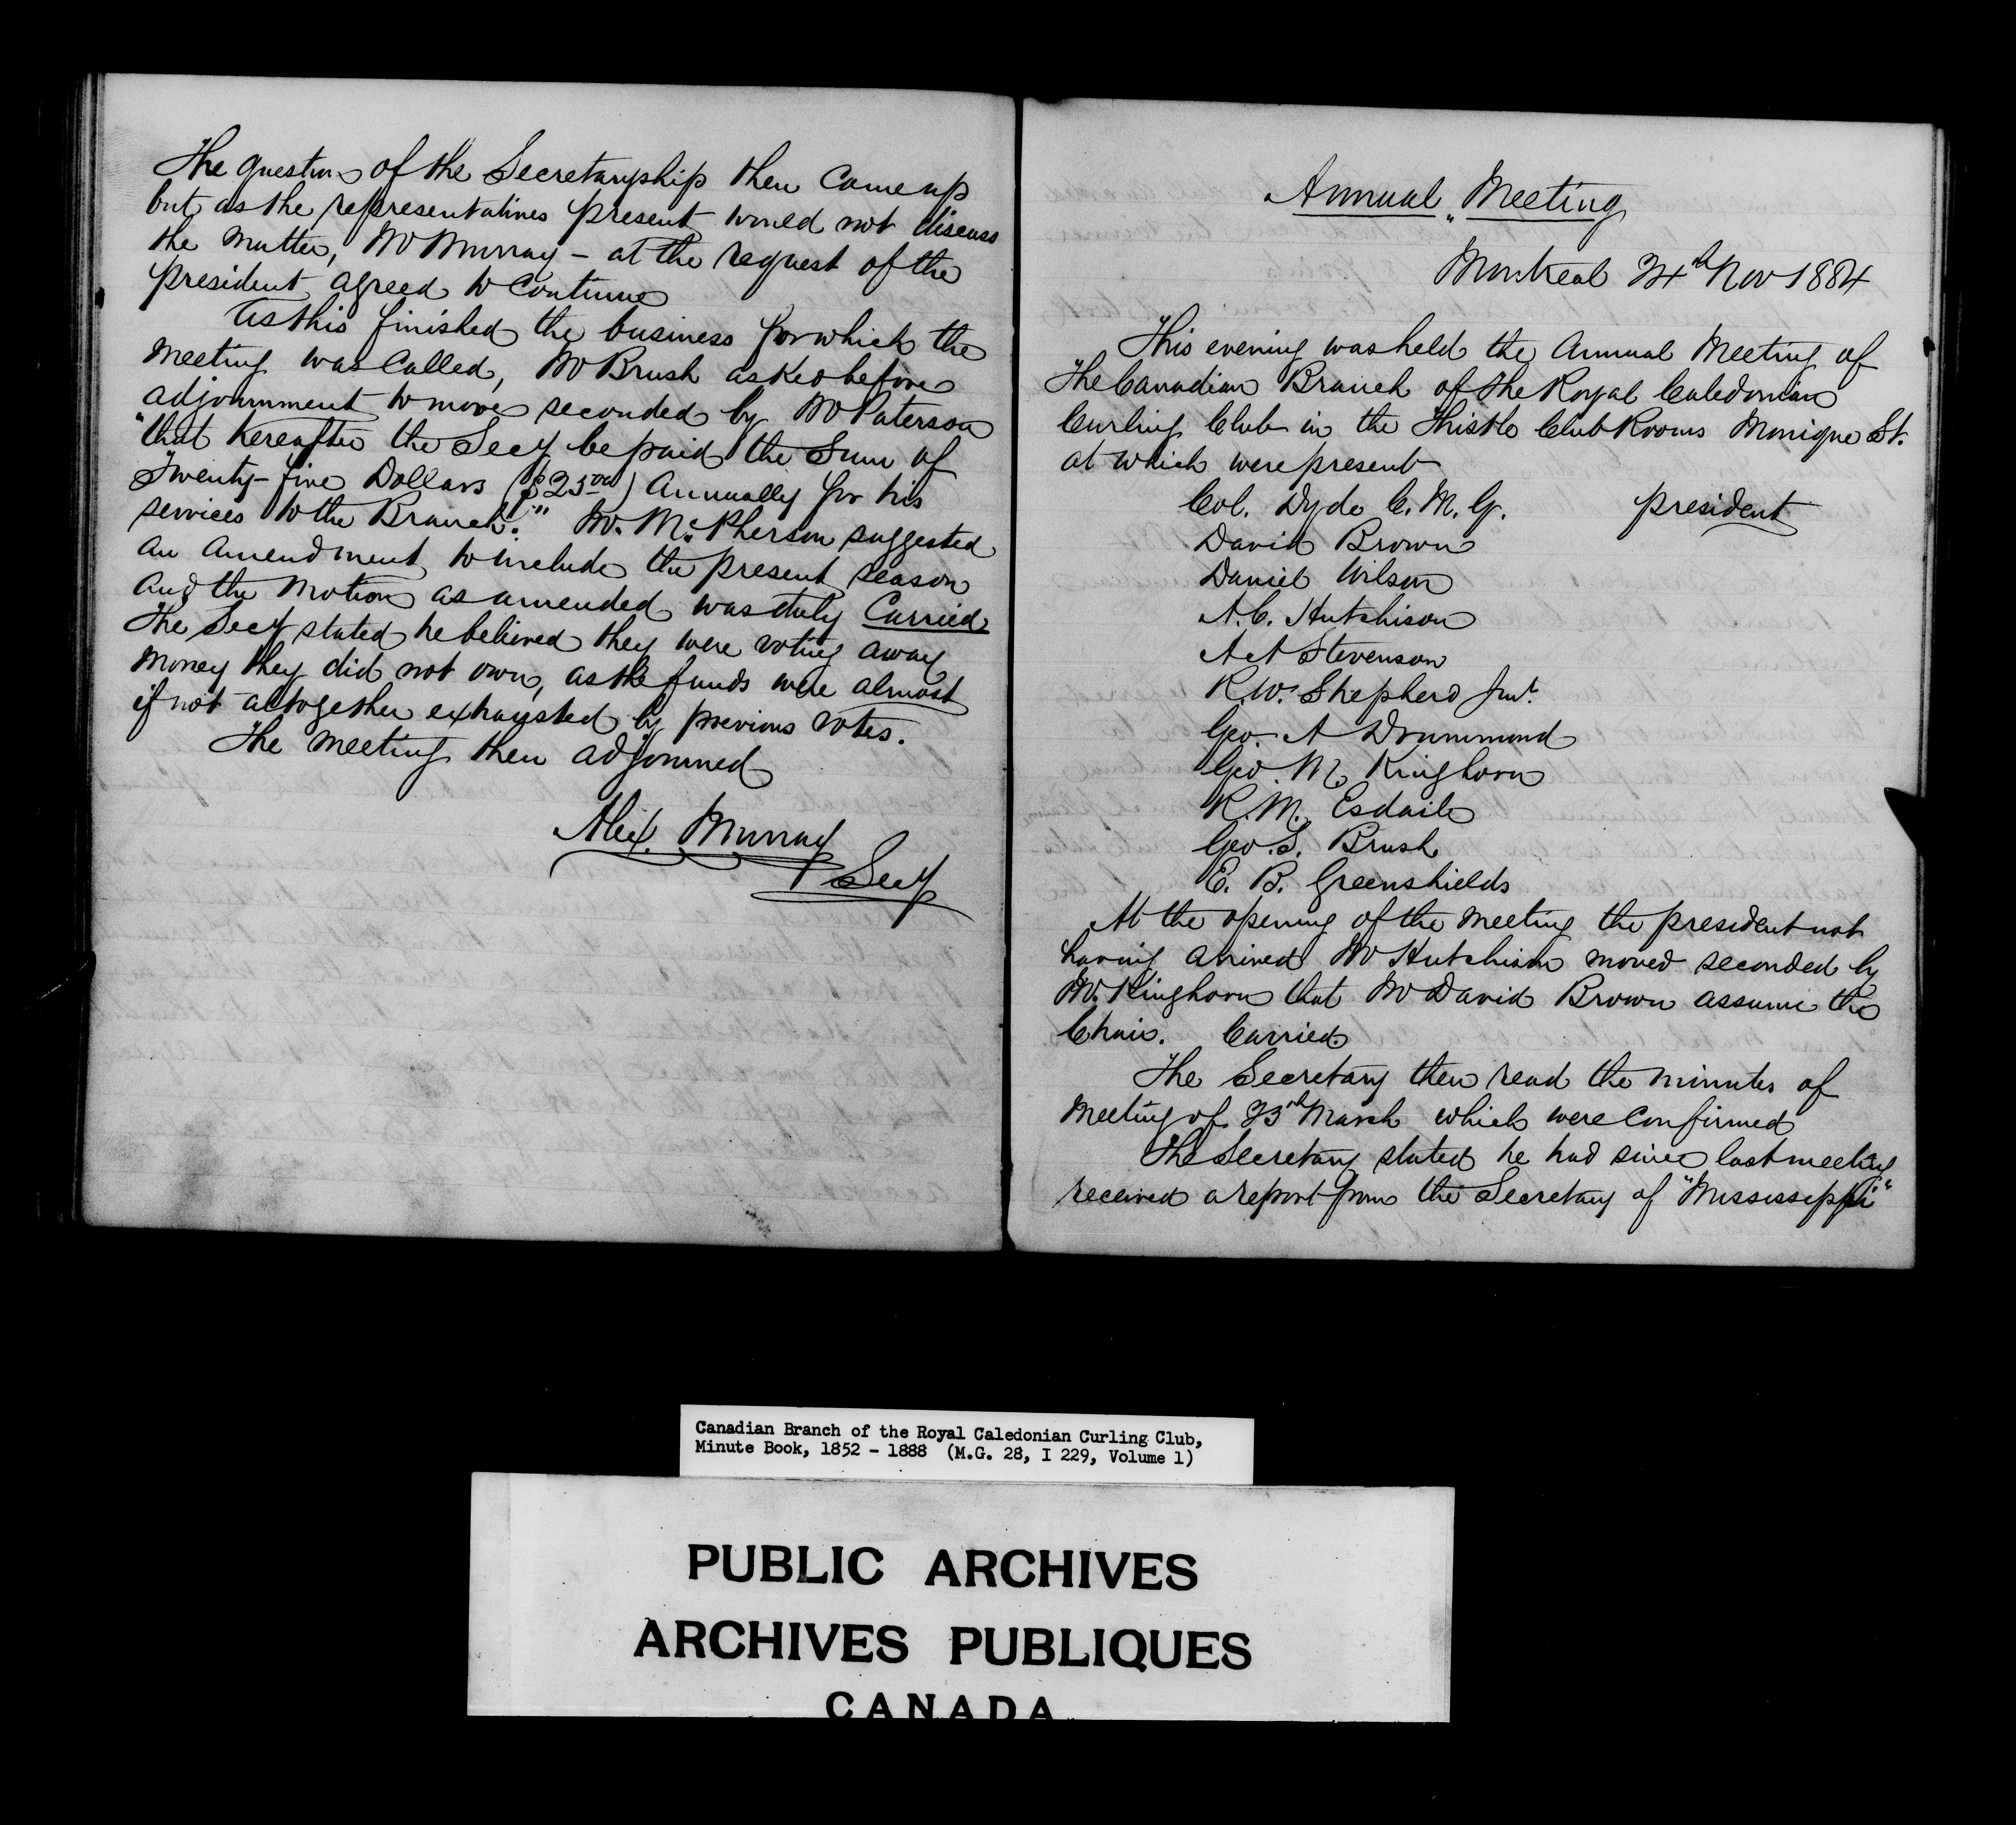 The question of the Secretaryship then came up
but as the representatives present would not discuss
the matter, Mr Murray - at the request of the
president agreed to continue
As this finished the business for which the
meeting was called, Mr Brush asked before
adjournment to move seconded by Mr Paterson
"that hereafter the Secy be paid the sum of
Twenty-five Dollars ($25.00) annually for his
services to the Branch." Mr. McPherson suggested
an amendment to include the present season
and the motion as amended was duly Carried
The Secy stated he believed they were voting away
money they did not own, as the funds were almost
if not altogether exhausted by previous votes.
The meeting then adjourned
Alex. Murray
Secy
Annual Meeting
Montreal 24th Nov 1884
This evening was held the Annual Meeting of
The Canadian Branch of the Royal Caledonian
Curling Club in the Thistle Club Rooms Monique St.
at which were present
Col. Dyde C.M.G. president
David Brown
Daniel Wilson
A.C. Hutchison
A A Stevenson
R.W. Shepherd Junr.
Geo. A Drummond
Geo. M. Kinghorn
R.M. Esdaile
Geo. S. Brush
E. B. Greenshields
At the opening of the meeting the president not
having arrived Mr Hutchison moved seconded by
Mr. Kinghorn that Mr David Brown assume the
Chair. Carried.
The Secretary then read the minutes of
meeting of 23rd March which were confirmed
The Secretary stated he had since last meeting
received a report from the Secretary of "Mississippi"
Canadian Branch of the Royal Caledonian Curling Club,
Minute Book, 1852 - 1888 (M.G. 28, I 229, Volume 1)
PUBLIC ARCHIVES
ARCHIVES PUBLIQUES
CANADA